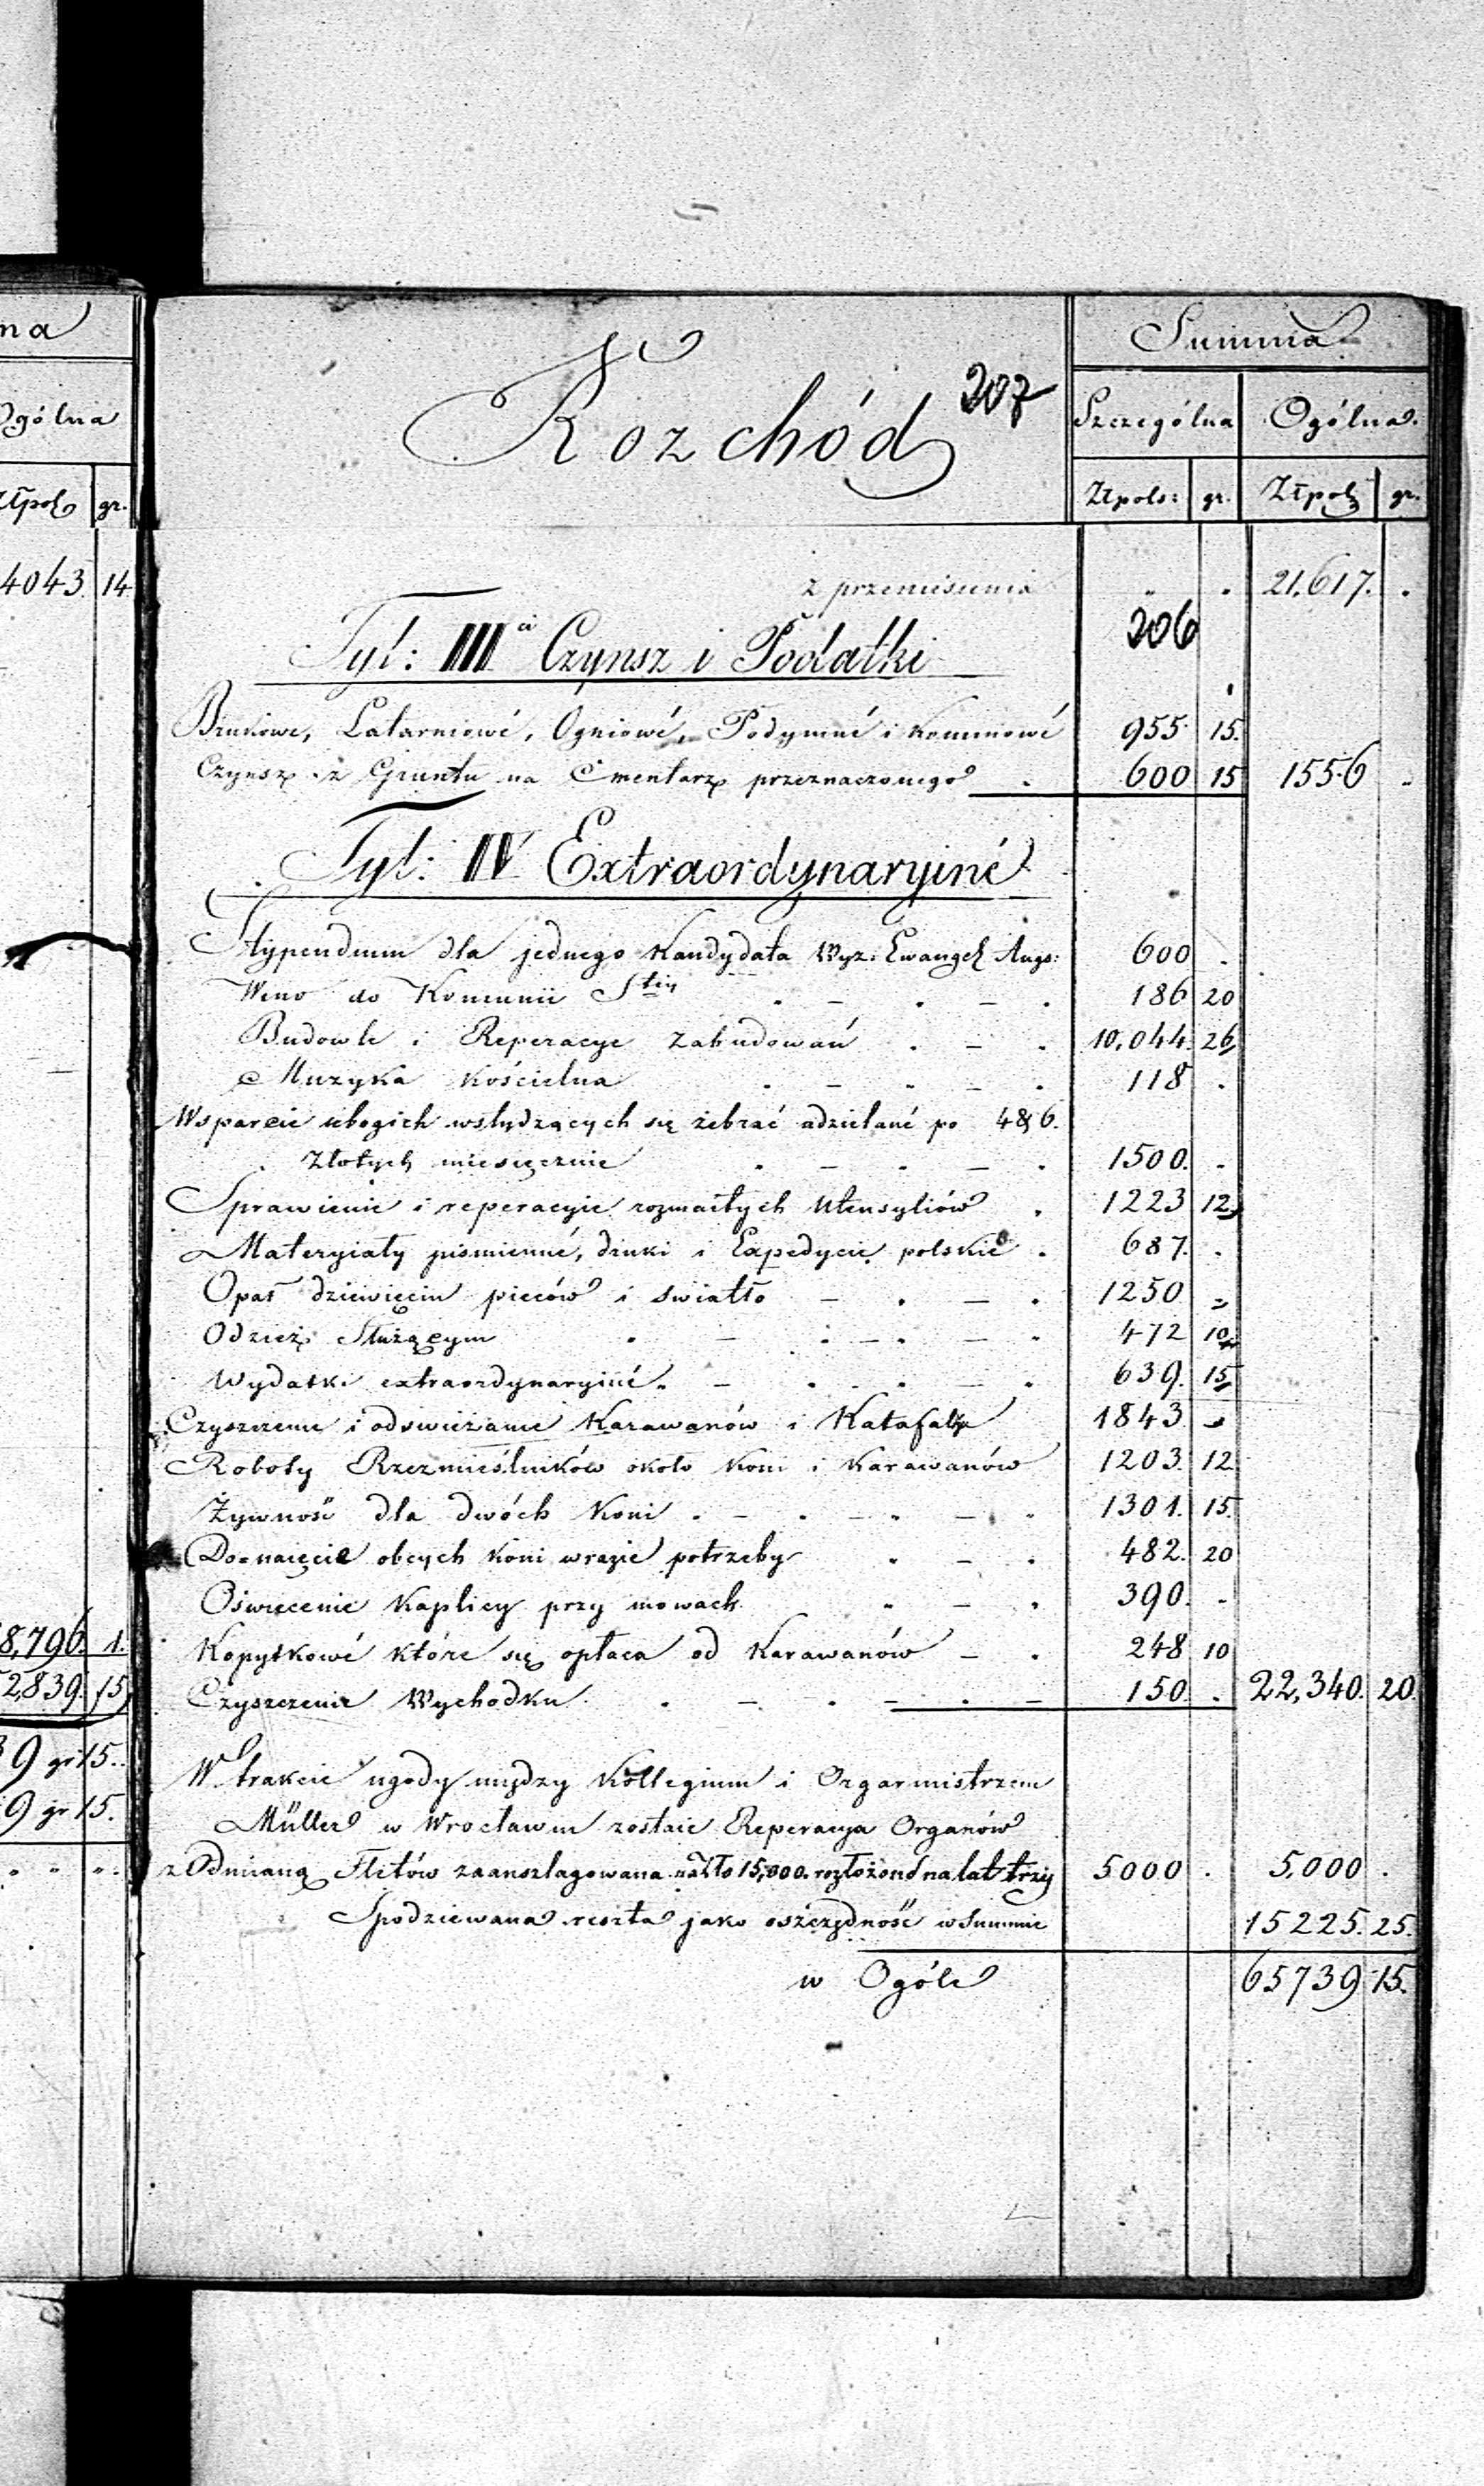 na
Ogólna
Złpol gr.
4043. 14
8,796. 1.
2,839. 15
9 gr 15.
9 gr 15.
Rozchód
207
Summa
Szczególna Ogólna.
Złpols: gr. Złpol gr.
z przeniesienia . . 21,617. .
206
Tyt: III ci Czynsz i Podatki
Brukowe, Latarniowé, Ogniowé, Podymné i Kominowé 955. 15.
Czynsz z Gruntu na Cmentarz przeznaczonego . 600 15 1556 .
Tyt: IV Extraordynaryiné
Stypendium dla jednego Kandydata Wyz: Ewangel Augs: 600 .
Wino do Komunii Stéy 186 20
Budowle i Reperacye Zabudowań 10,044. 26
Muzyka Kościelna 118 .
Wsparcie ubogich wstydzących się żebrać udzielané po 4 & 6.
Złotych miesięcznie 1500. .
Sprawienie i reperacyie rozmaitych Utensyliów 1223 12
Materyiały pismienné, druki i Expedycie polskie . 687. .
Opał dziewięciu pieców i swiatło 1250
Odzież Służącym 472 10
Wydatki extraordynaryiné 639. 15
Czyszczenie i odswieżanie Karawanów i Katafalku 1843
Roboty Rzezmieślników około Koni i Karawanów 1203. 12
Żywność dla dwóch Koni 1301. 15.
Do=naięcie obcych koni w razie potrzeby 482. 20
Oświecenie Kaplicy przy mowach 390. .
Kopytkowé które się opłaca od Karawanów 248 10
Czyszczenie Wychodku 150 . 22,340. 20.
W trakcie ugody między Kollegium i Orgarmistrzem
Müller w Wrocławiu zostaie Reperacya Organów
z Odmianą Fletów zaanszlagowana na Złto 15,000. rozłożoné na lat trzy 5000 . 5,000 .
Spodziewana reszta jako oszczędność w Summie 15225. 25.
w Ogóle 65739 15.